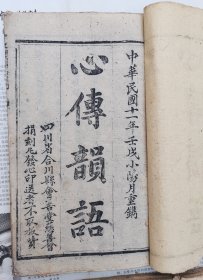 中華民國十一年壬戌小陽月重鐫
心傳韻語
四川省合川縣會善堂慈善會
捐刻凡發心印送者不取板貲